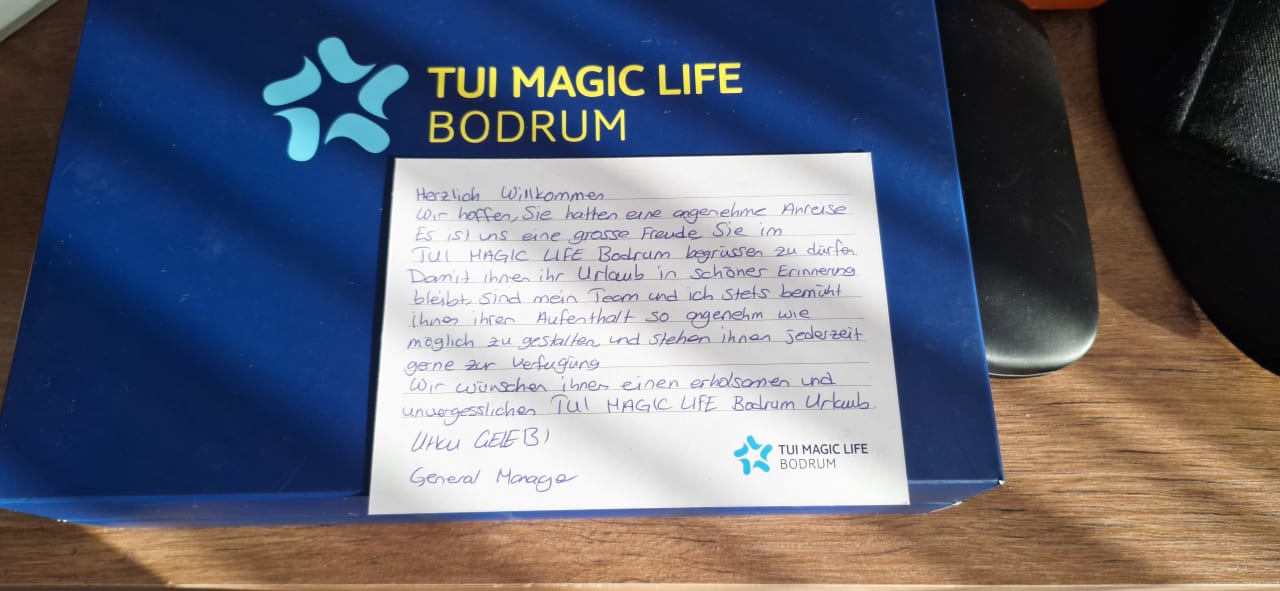 TUI MAGIC LIFE
BODRUM
Herzlich Willkommen
Wir hoffen, Sie hatten eine angenehme Anreise
Es ist uns eine grosse Freude Sie im
TUI MAGIC LIFE Bodrum begrüssen zu dürfen.
Damit ihnen ihr Urlaub in schönes Erinnerung
bleibt, sind mein Team und ich stets bemüht
ihnen ihren Aufenthalt so angenehm wie
möglich zu gestalten, und stehen ihnen jederzeit
gerne zur Verfügung
Wir wünschen ihnen einen erholsamen und
unvergesslichen TUI MAGIC LIFE Bodrum Urlaub.
General Manager
TUI MAGIC LIFE
BODRUM